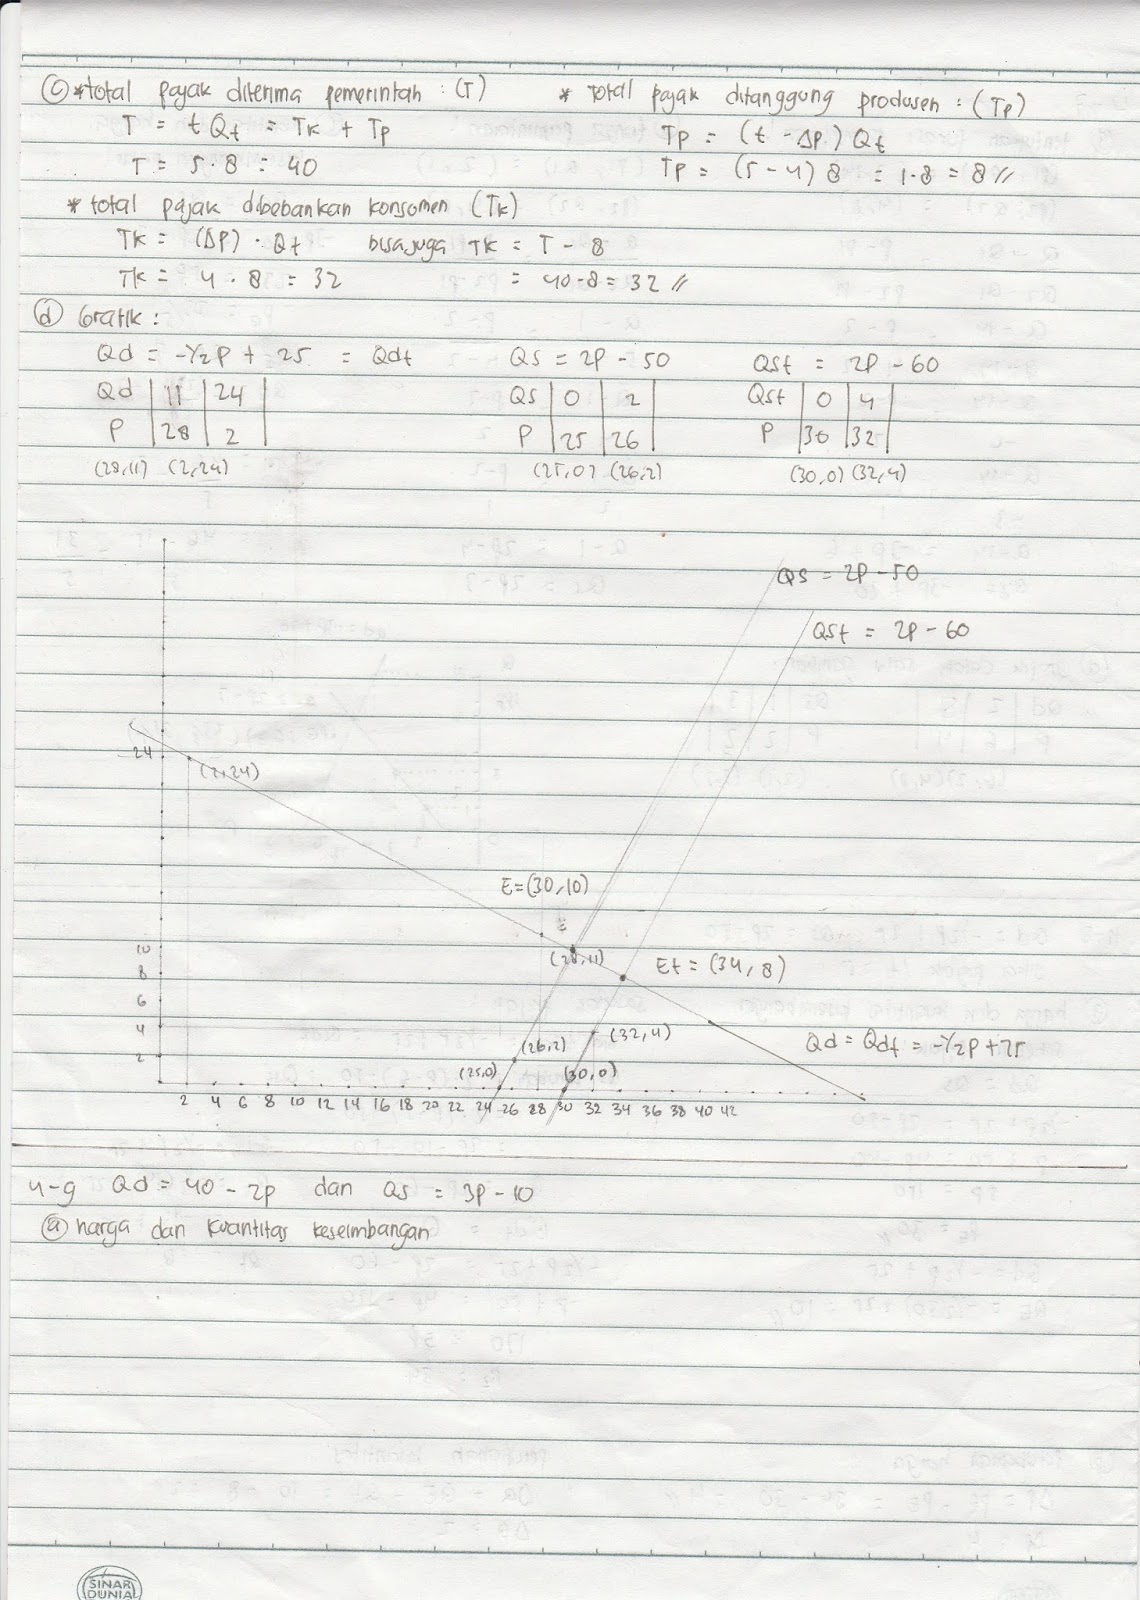 (c) * total pajak diterima pemerintah : (T)
T = t Qt = Tk + Tp
T = 5 . 8 = 40
* Total pajak ditanggung produsen : (Tp)
Tp = (t - Δp.) Qt
Tp = (5 - 4) 8 = 1.8 = 8 //
* total pajak dibebankan konsumen (Tk)
Tk = (Δp) . Qt bisa juga Tk = T - 8
Tk = 4 . 8 = 32 = 40-8 = 32 //
(d) Grafik :
Qd = -1/2p + 25 = Qdt
Qd | 11 | 24
P | 28 | 2
(28,11) (2,24)
Qs = 2p - 50
Qs | 0 | 2
P | 25 | 26
(25,0) (26,2)
Qst = 2p - 60
Qst | 0 | 4
P | 30 | 32
(30,0) (32,4)
Qs = 2p - 50
Qst = 2p - 60
24
(2,24)
E = (30,10)
10
(28,11)
Et = (34,8)
8
6
4
(32,4)
Qd = Qdt = -1/2p + 25
(26,2)
2
(25,0) (30,0)
2 4 6 8 10 12 14 16 18 20 22 24 26 28 30 32 34 36 38 40 42
4-9 Qd = 40 - 2p dan Qs = 3p - 10
(a) harga dan kuantitas keseimbangan
SINAR
DUNIA